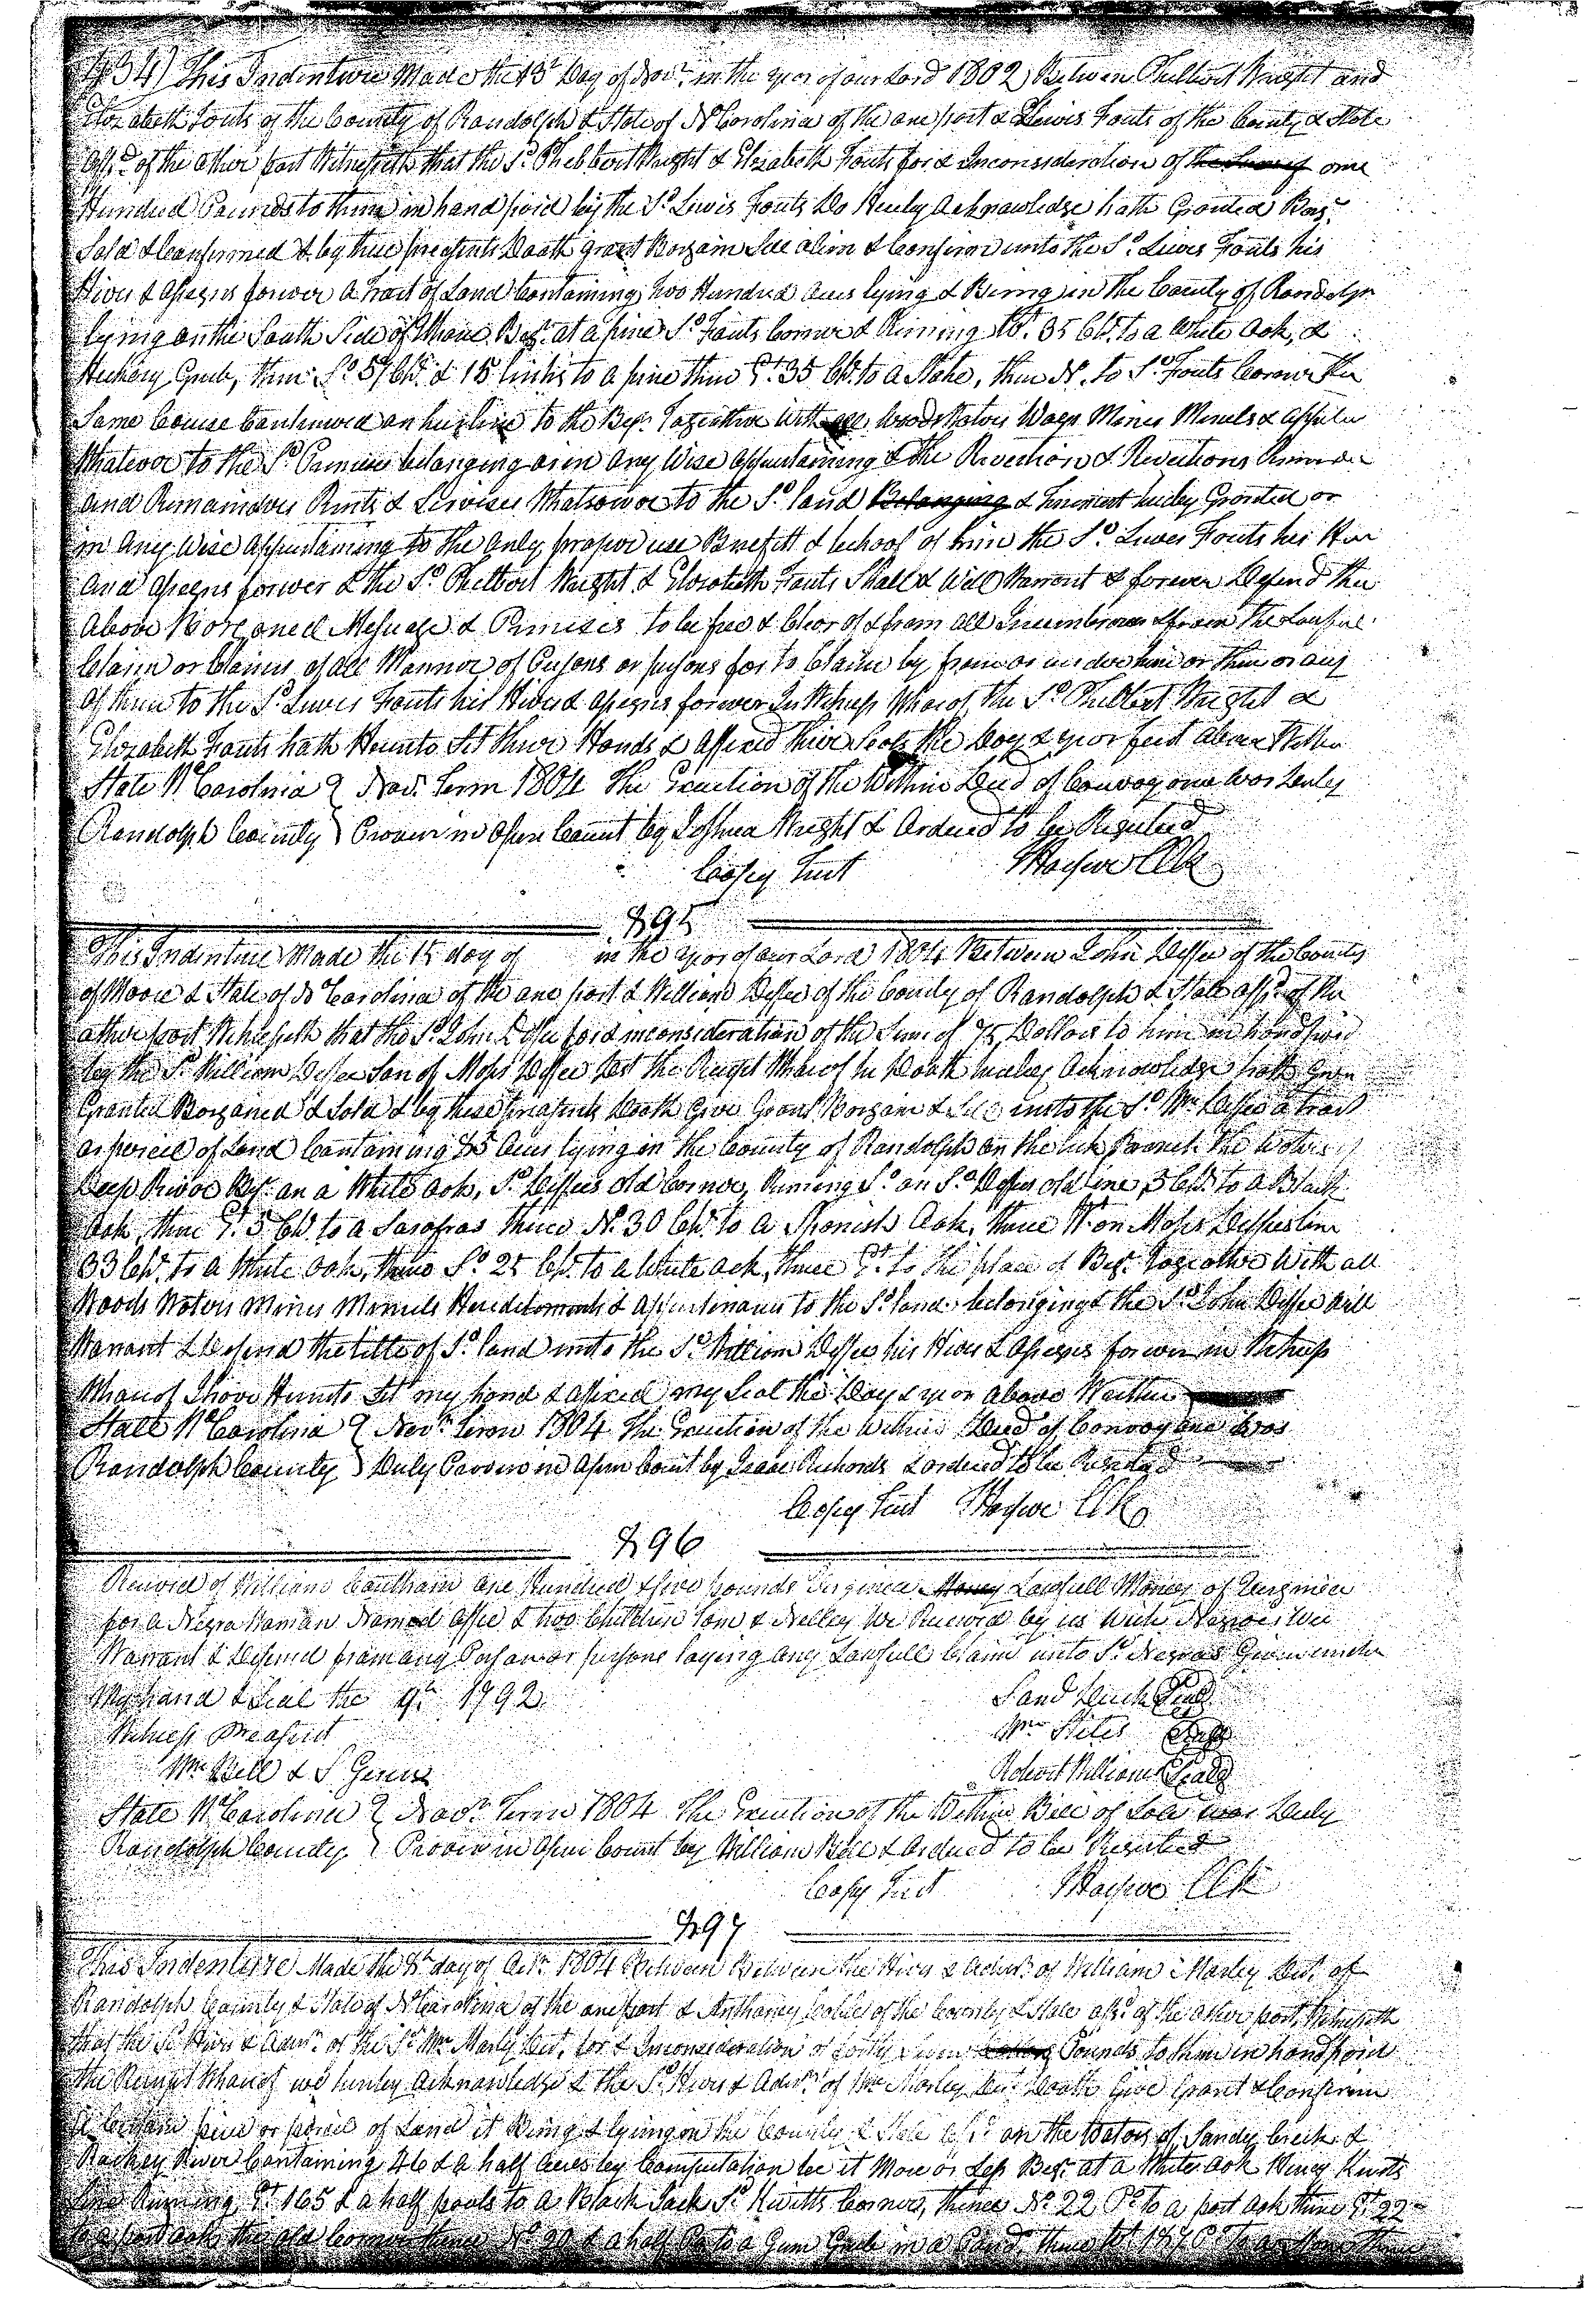 434) This Indenture Made the 13th Day of Novr. in the year of our Lord 1802 Between Philbert Wright and
Elizabeth Fouts of the County of Randolph & State of No Carolina of the one part & Lewis Fouts of the County & State
Affsd. of the other part Witnesseth that the Sd. Philbert Wright & Elizabeth Fouts for & Inconsideration of the Sum of one
Hundred Pounds to them in hand paid by the Sd. Lewis Fouts Do Hereby Acknowledge hath Granted Barg.
Sold & Confirmed & by these presents Doath grant Bargain Sell alien & Confirm unto the Sd. Lewis Fouts his
Hires & Assigns forever a Tract of Land Containing Two Hundred acres lying & Being in the County of Randolph
lying on the South Side of Uharie Beg. at a pine Sd. Fouts Corner & Runing Wt. 35 Chs. to a White Oak, &
Hickory Grub, thence So. 57 Chs. & 15 links to a pine thence Et. 35 Chs. to a Stake, thence N. to Sd. Fouts Corner the
Same Course Continued on his line to the Beg. Togeather with all Woods Waters Ways Mines Minrels &
Whatever to the Sd. Premises belonging or in any Wise appurtaining & the Revertion & Revertions
and Remainders Rents & Services Whatsoever to the Sd. land Belonging & hereby Granted or
in any Wise appurtaining to the only proper use Benefitt & behoof of him the Sd. Lewis Fouts his
and assigns forever & the Sd. Philbert Wright & Elizabeth Fouts Shall & Will Warrant & forever Defend the
Above Mesuage & Premises to be free & Clear of & from all Incumbrances & from the Lawful
Claim or Claims of all Manner of Persons or persons for to Claim by from or under him or them or any
of them to the Sd. Lewis Fouts his Hires & Assigns forever In Witness Whereof the Sd. Philbert Wright &
Elizabeth Fouts hath Hereunto Set there Hands & Affixed their Seals the Day & year first above Written
State N. Carolina } Novr. Term 1804 The Execution of the Within Deed of Convayance Was Duly
Randolph County } Proven in Open Court by Joshua Wright & Ordered to be Registered
Copey Test JHarper Clk
895
This Indenture Made the 15 day of in the year of our Lord 1804 Between John Deffee of the County
of Moore & State of No Carolina of the one part & William Deffee of the County of Randolph & State affsd. of the
other part Witnesseth that the Sd. John Deffee for & inconsideration of the Sum of 75 Dollars to him in hand paid
by the Sd. William Deffee Son of Moses Deffee the Receipt Whereof he Doath hereby Acknowledge hath Given
Granted Bargained & Sold & by these presents Doath Give Grant Bargain & Sell unto the Sd. Wm Deffee a tract
or percel of Land Containing 85 Acres lying in the County of Randolph on the Branch the Waters of
Deep River Beg. on a White Oak, Sd. Deffees old Corner, Runing So. on Sd. Deffees old line, 5 Chs. to a Black
Oak, thence Et. 5 Chs. to a Sasafras thence No. 30 Chs. to a Spanish Oak, thence Wt. on Moses Deffees line
33 Chs. to a White Oak, thence So. 25 Chs. to a White oak, thence Et. to the place of Beg. Togeather With all
Woods Waters Mines Minrels Hereditaments & Appurtenances to the Sd. land belonging & the Sd. John Deffee Will
Warrant & Defend the title of Sd. land unto the Sd. William Deffee his Hires & Assigns forever in Witness
Whereof I have Hereunto Set my hand & affixed my Seal the Day & year above Written
State No Carolina } Novr. Term 1804 The Execution of the Within Deed of Convayance Was
Randolph County } Duly Proven in Open Court by Isaac Richards & ordered to be Registered
Copey Test JHarper Clk
896
Receved of William Cantham One Hundred & five pounds Virginea Money Lawfull Money of Virginiea
for a Negra Woman Named Affie & two Children Tom & Nelley We Receved by us Wich Negroes We
Warrant & Defend from any Person or persons laying any Lawfull Claim unto Sd. Negros Given under
My hand & Seal the 9th 1792
Sand Leuck Seal
Witness Preasent Wm Stiles Seal
Wm Bell & S Robert Williams Seal
State N Carolina } Novr. Term 1804 The Execution of the Within Bill of Sale was Duly
Randolph County } Proven in Open Court by William Bell & Ordered to be Registered
Copey Test JHarper Clk
897
This Indenture Made the 8th day of Octr. 1804 Between Between the Hires & Admrs. of William Marley Decd. of
Randolph County & State of No Carolina of the one part & Anthaney Coble of the County & State affsd. of the other part, Witnesseth
that the Sd. Hires & Admrs. of the Sd. Wm Marley Decd. for & Inconsideration of forty Seven Dollars Pounds to them in hand paid
the Receipt Whereof we hereby Acknowledge & the Sd. Hires & Admrs. of Wm Marley Decd. Doath Give Grant & Confirm
A Certain piece or percel of Land it Being & lying in the County & State affsd. on the Waters of Sandy Creek &
Rackey River Containing 46 & a half Acres by Computation be it More or Less Beg. at a White oak Kivitts
line Runing Et. 165 & a half poals to a Black Jack Sd. Kivitts Corner, thence No. 22 Po. to a post oak thence Et. 22
to a post oak the old Corner thence No. & a half Po. to a Gum Grub in a Pond, thence Wt. Po. to thence